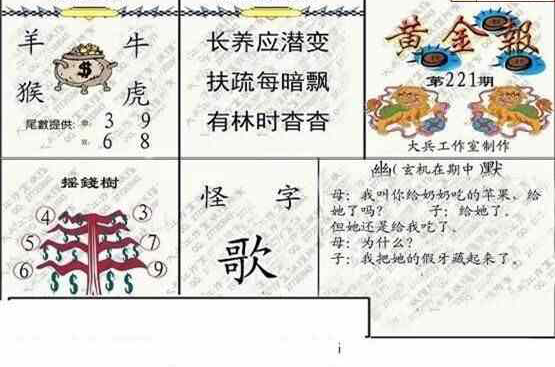 羊 牛
$
猴 虎
尾數提供: 3 9
6 8
长养应潜变
扶疏每暗飘
有林时杳杳
黄金報
第221期
大兵工作室制作
摇錢樹
4 3
5 7
6 9
$ $ $ $ $ $
怪 字
歌
幽(玄机在期中)默
母：我叫你给奶奶吃的苹果，给
她了吗？ 子：给她了，
但她还是给我吃了。
母：为什么？
子：我把她的假牙藏起来了。
i